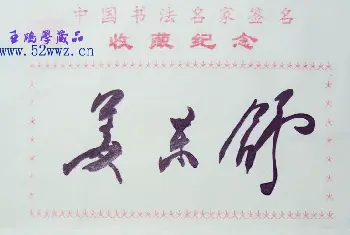 中国书法名家签名
收藏纪念
王鹏学藏品
www.52wwz.cn
姜东舒